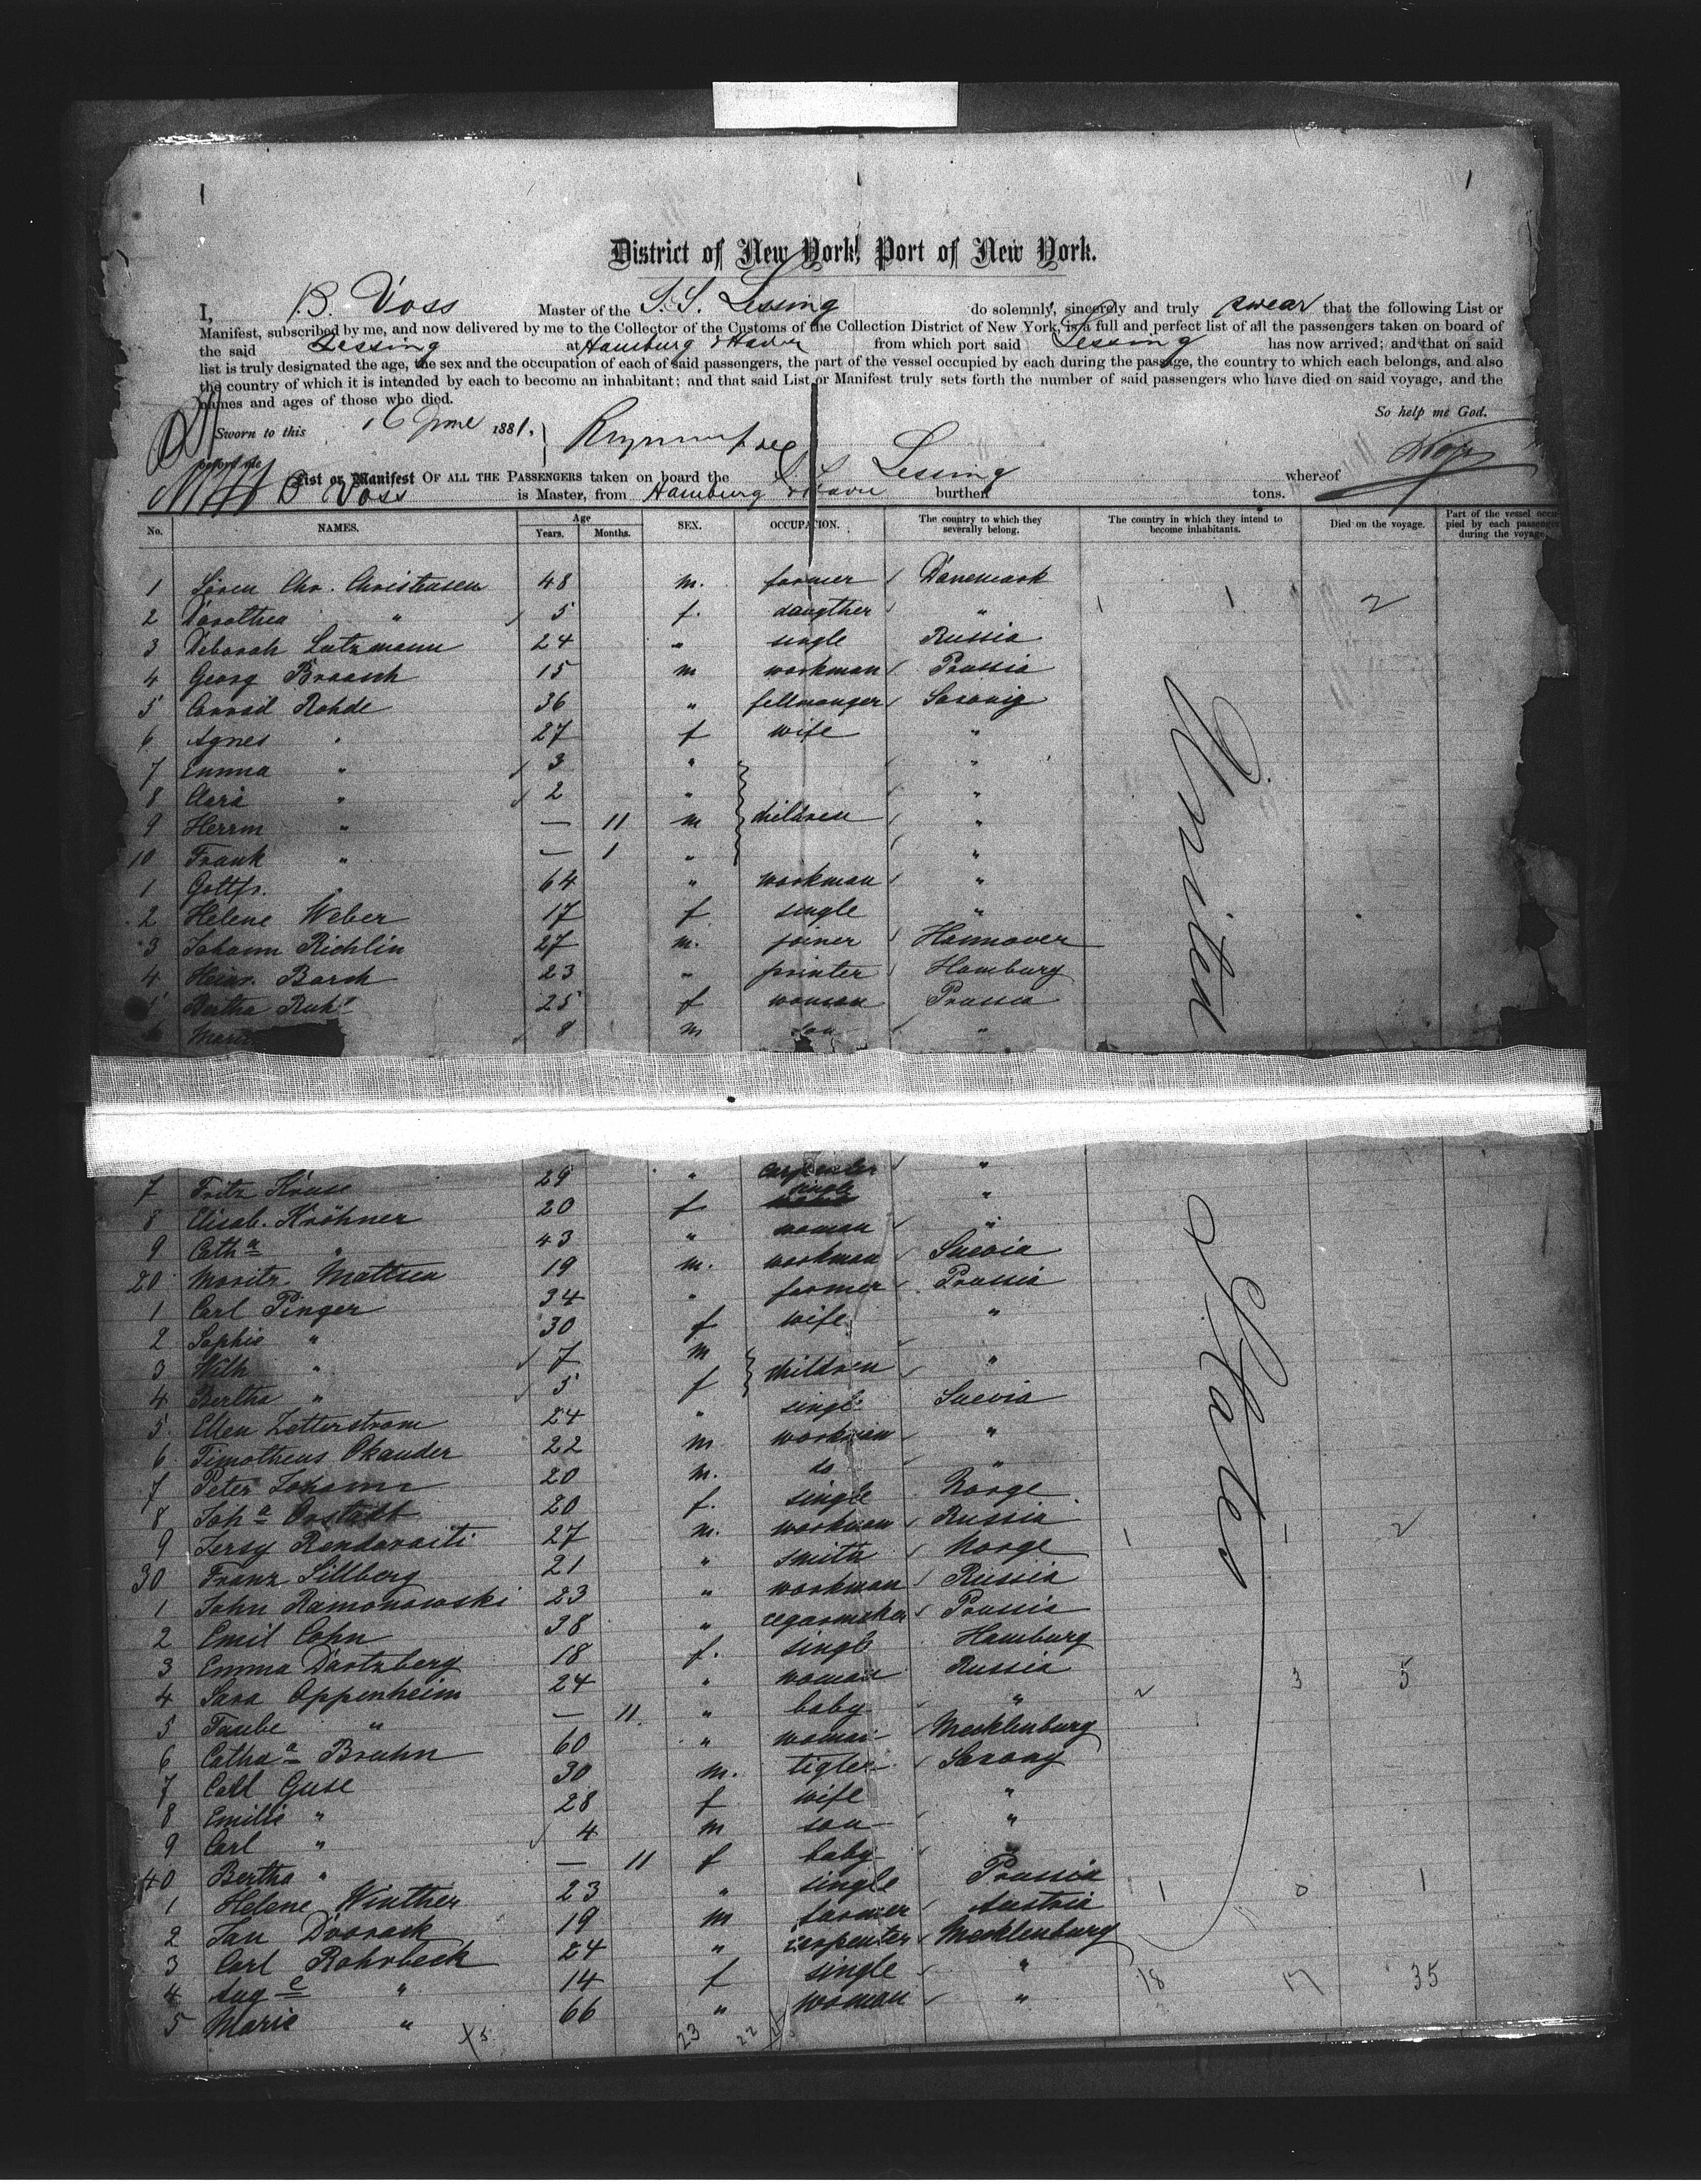 1 1
District of New York, Port of New York.
I, B. Voss Master of the S.S. Lessing do solemnly, sincerely and truly swear that the following List or
Manifest, subscribed by me, and now delivered by me to the Collector of the Customs of the Collection District of New York, is a full and perfect list of all the passengers taken on board of
the said Lessing at Hamburg & Havre from which port said Lessing has now arrived; and that on said
list is truly designated the age, the sex and the occupation of each of said passengers, the part of the vessel occupied by each during the passage, the country to which each belongs, and also
the country of which it is intended by each to become an inhabitant; and that said List or Manifest truly sets forth the number of said passengers who have died on said voyage, and the
names and ages of those who died.
So help me God.
Sworn to this 16 June 1881,
before me
List or Manifest OF ALL THE PASSENGERS taken on board the S.S. Lessing whereof
B Voss is Master, from Hamburg & Havre burthen tons.
No. NAMES. Age Years. Months. SEX. OCCUPATION. The country to which they severally belong. The country in which they intend to become inhabitants. Died on the voyage. Part of the vessel occupied by each passenger during the voyage.
1 Sören Chr. Christensen 48 m. farmer Danemark
2 Dorothea " 5 f. daugther " 1 1 2
3 Deborah Lutzmann 24 " single Russia
4 Georg Braasch 15 m workman Prussia
5 Conrad Rohde 36 " fellmonger Saxony
6 Agnes " 27 f wife "
7 Emma " 3 " "
8 Clara " 2 " "
9 Herrm " — 11 m children "
10 Frank " — 1 " "
1 Gottfr. " 64 " workman "
2 Helene Weber 17 f single "
3 Johann Richlin 27 m. joiner Hannover
4 Heinr. Barsh 23 " printer Hamburg
5 Bertha 25 f woman Prussia
6 8 m son "
United States
7 Fritz Kruse 29 " carpenter "
8 Elisab. Kröhner 20 f single "
9 Cath<u>a</u> " 43 " woman "
20 Moritz Mattsen 19 m. workman Suevia
1 Carl Pinger 34 " farmer Prussia
2 Sophie " 30 f wife "
3 Wilh " 7 m
4 Bertha " 5 f children "
5 Ellen Zetterstrom 24 " single Suevia
6 Timotheus Okander 22 m workman "
7 Peter Johann 20 m. do "
8 Joh<u>a</u> Orstadt 20 f. single Norge
9 Jersy Rendaraiti 27 m. workman Russia 1 1 2
30 Franz Sillberg 21 " smith Norge
1 John Ramonowski 23 " workman Russia
2 Emil Cohn 38 " cegarmaker Prussia
3 Emma Dartzberg 18 f. single Hamburg
4 Sara Oppenheim 24 " woman Russia 2 3 5
5 Taube " — 11 " baby "
6 Catha<u>a</u> Bruhn 60 " woman Mecklenburg
7 Carl Guse 30 m. tigler Saxony
8 Emilie " 28 f wife "
9 Carl " 4 m son "
40 Bertha " — 11 f baby "
1 Helene Winther 23 " single Prussia 1 0 1
2 Jan Dvorack 19 m farmer Austria
3 Carl Rohrbeck 24 " carpenter Mecklenburg
4 Aug<u>e</u> " 14 f single " 18 17 35
5 Marie " 66 " woman "
X5 23 22